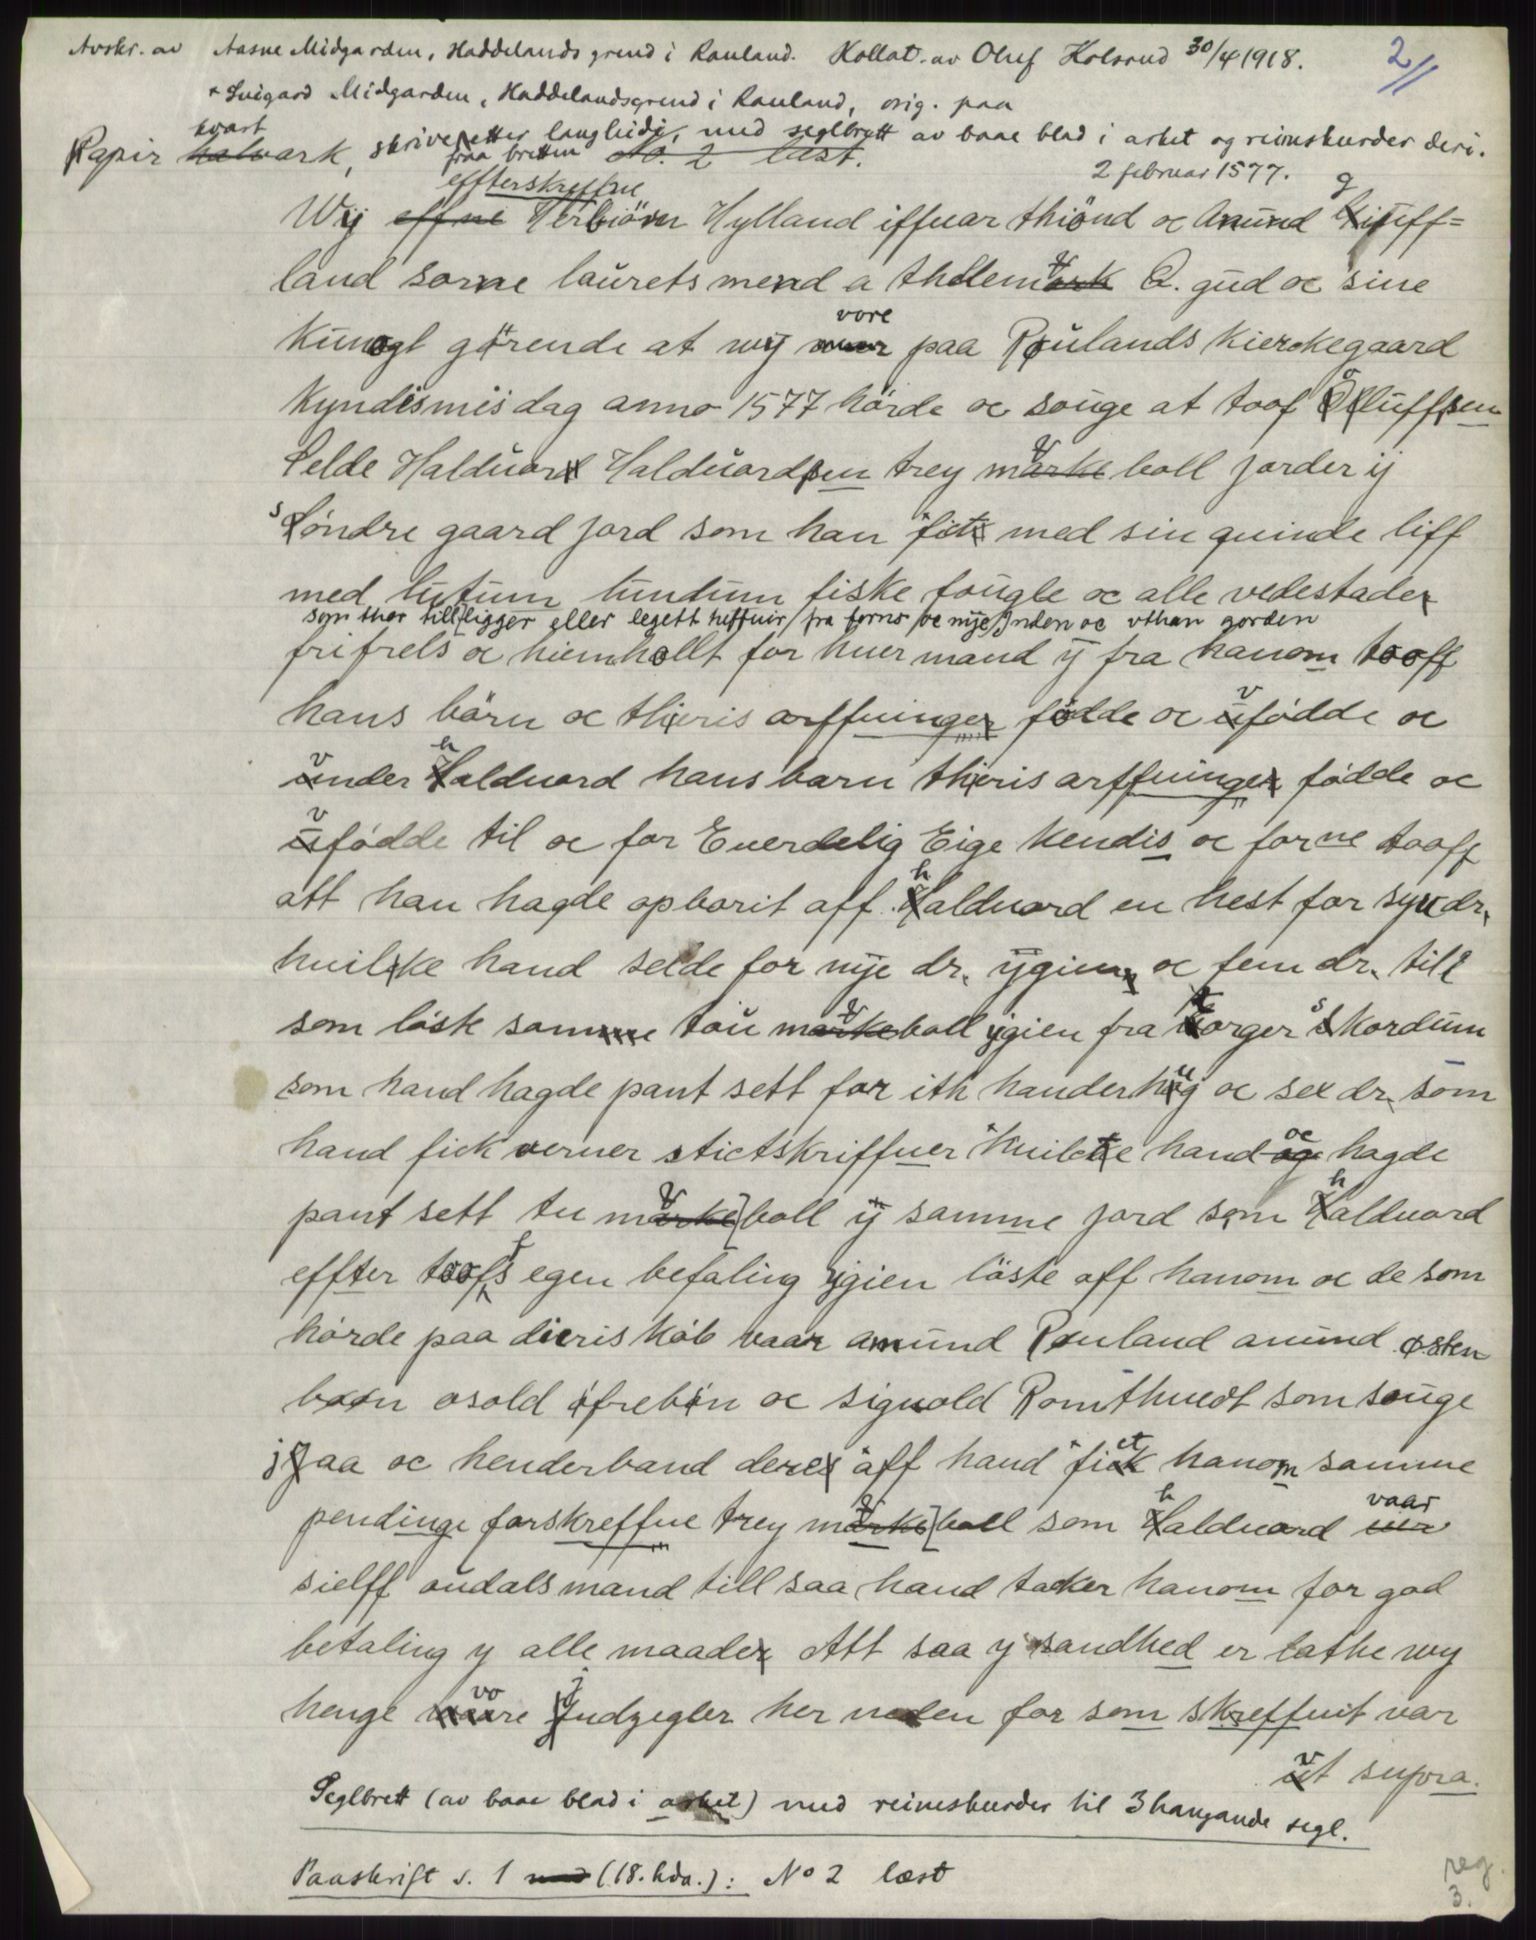 Avskr. av Aasne Midgarden, Haddelands grend i Rauland. Kollat. av Oluf Kolsrud 30/4 1918.
2
+ Svigard Midgarden, Haddelandsgrend i Rauland, orig. paa
Papir kvart halvark, skrive etter langleidi, med seglbrett av baae blad i arket og reimskurder deri.
fraa bretten No. 2 læst.
2 februar 1577.
Wij effne effterskreffne Verbiörn Hylland iffuar thiönd oc Anund giuff=
land sorne laurets mend a thelemark Q. gud oc sine
kunogt görende at wij vore paa Roulands kierckegaard
Kyndismis dag anno 1577 hörde oc souge at toof Oluffsen
selde Halduord Halduordsen trey marke boll jorder ij
söndre gaard jord som han fick med sin quinde liff
med lutum lundum fiske fougle oc alle vedestader
som ther till ligger eller legett heffuir fra forno oc nye Jnden oc vthan gorden
frifrels oc hiemhollt for huer mand ij fra hanom tooff
hans börn oc thieris arffuinger födde oc vfödde oc
vnder halduord hans barn theris arffuinger födde oc
vfödde til oc for Euerdelig Eige Kendis oc forne tooff
att han hagde opborit aff halduord en hest for syu dr.
huilke hand selde for nye dr. ygien oc fem dr. till
som löste samme tou markeboll ygien fra torger skordum
som hand hagde pant sett for ith handerhug oc sex dr. som
hand fick verner stictskriffuer huilcke hand oc hagde
pant sett tu marke boll ij samme jord som halduord
effter tooffs egen befaling ygien löste aff hanom oc de som
hörde paa dieris köb vaar amund Rouland anund østen
boon osold öfrebön oc siguold Romthuedt som souge
jaa oc henderband deres aff hand fick hanom samme
pendinge forskreffne trey marke boll som halduord vaar
sielff oudals mand till saa hand tacker hanom for god
betaling y alle maader Att saa y sandhed er lathe wy
henge vore Jndzegler her neden for som skreffuit var
vt supra.
Seglbrett (av baae blad i arket) med reimskurder til 3 hangande segl.
Paaskrift s. 1 (18. hda.): No 2 læst
reg.
3.